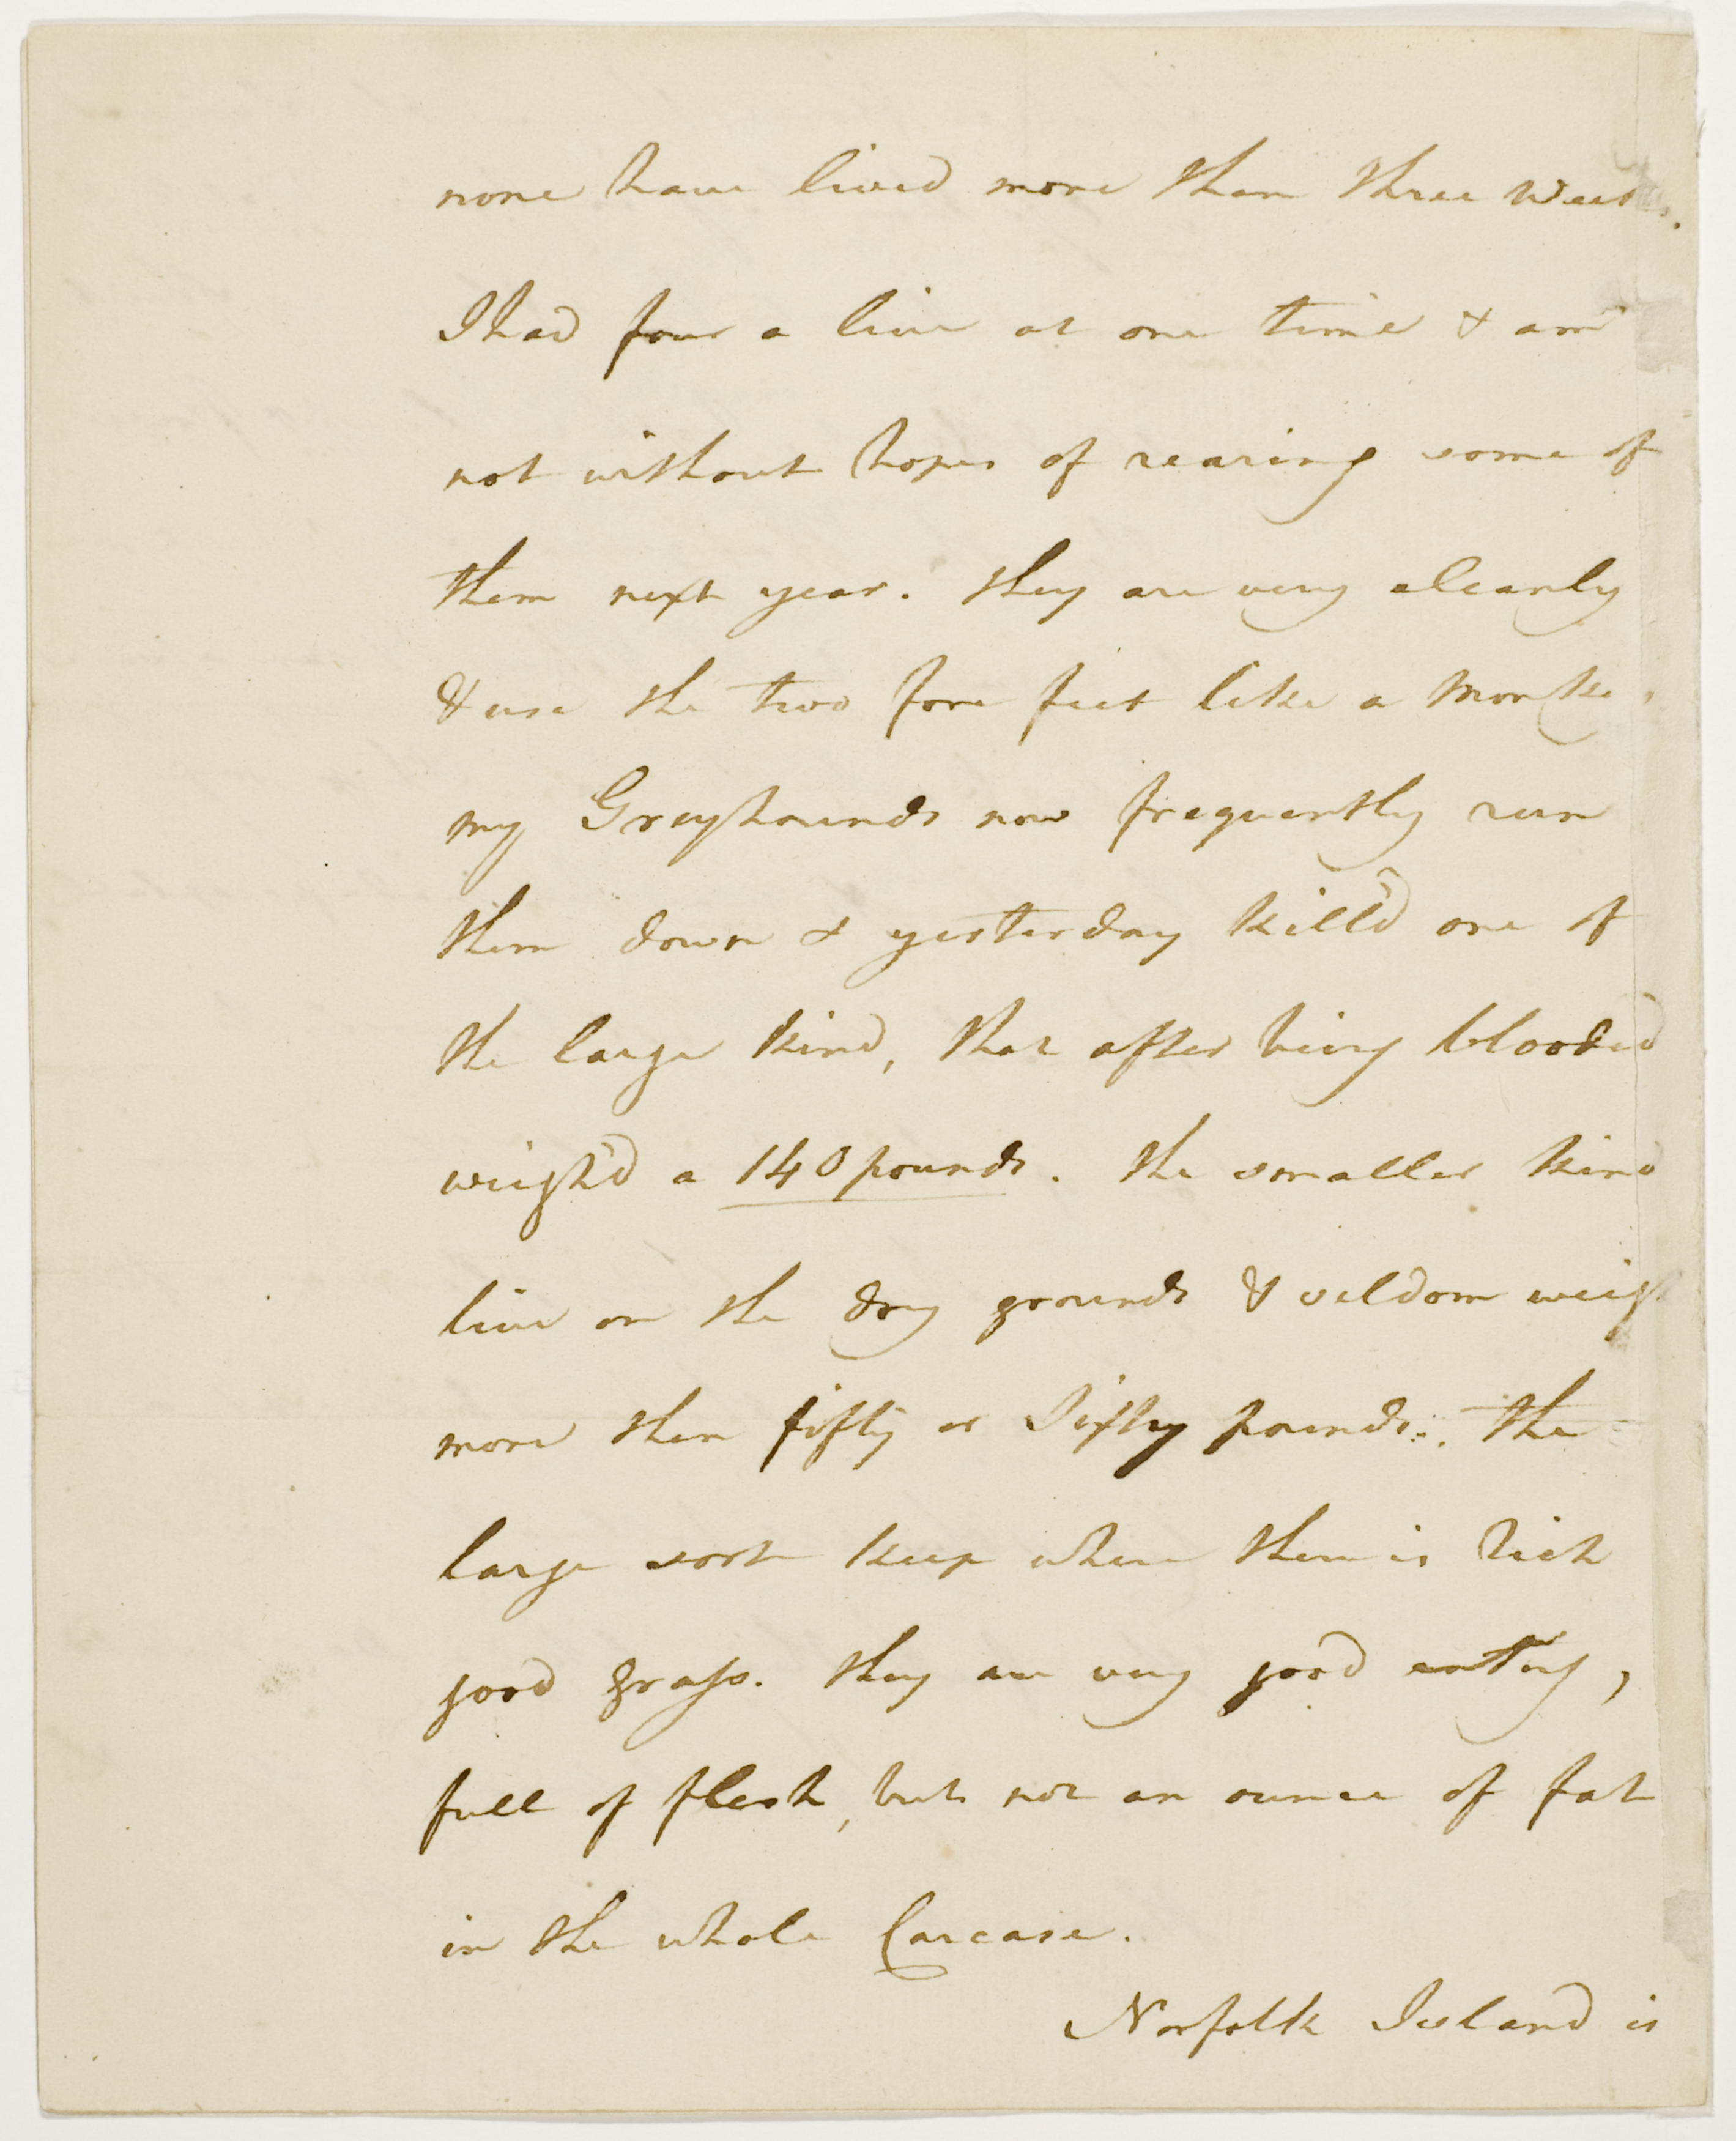 none have lived more than three weeks.
I had four a live at one time & am
not without hopes of rearing some of
them next year. they are very cleanly
& use the two fore feet like a Monke
my Greyhounds now frequently run
them down & yesterday kill'd one of
the large kind, that after being blooded
weigh'd a 140 pounds. the smaller kind
live on the dry grounds & seldom weigh
more then fifty or Sixty pounds. The
large sort keep where there is rich
good grass. they are very good eating,
full of flesh, but not an ounce of fat
in the whole Carcase.
Norfolk Island is